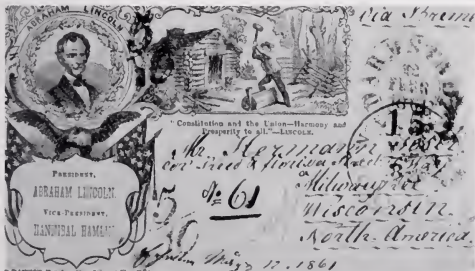 ABRAHAM LINCOLN
"Constitution and the Union—Harmony and
Prosperity to all."—LINCOLN.
PRESIDENT,
ABRAHAM LINCOLN.
VICE-PRESIDENT,
HANNIBAL HAMLIN
Via
Mr. Hermann
cor Reed & Florida Street
Milwaukee
Wisconsin.
North. America
No 61
12. 1861